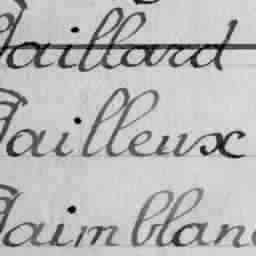 Paillard
Pailleux
Paimblanc